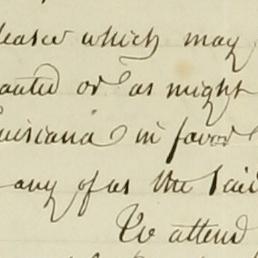 lease which may
anted or as might
ouisiana in favor
any of us the said
To attend